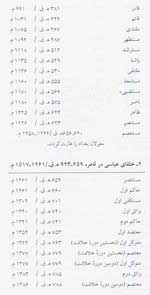 قادر ۳۸۱ ه‍.ق. / ۹۹۱ م.
قائم ۴۲۲ ه‍.ق. / ۱۰۳۱ م.
مقتدی ۴۶۷ ه‍.ق. / ۱۰۷۵ م.
مستظهر ۴۸۷ ه‍.ق. / ۱۰۹۴ م.
مسترشد ۵۱۲ ه‍.ق. / ۱۱۱۸ م.
راشد ۵۲۹ ه‍.ق. /
مقتفی ۵۳۰ ه‍.ق. / ۱۱۳۶ م.
مستنجد ۵۵۵ ه‍.ق. / ۱۱۶۰ م.
مستضیء ۵۶۶ ه‍.ق. / ۱۱۷۰ م.
ناصر ۵۷۵ ه‍.ق. / ۱۱۸۰ م.
ظاهر ۶۲۲ ه‍.ق. / ۱۲۲۵ م.
مستنصر ۶۲۳ ه‍.ق. /
مستعصم
مغولان بغداد را غارت کردند.
۲ـ خلفای عباسی در قاهره، ۶۵۹ـ۹۲۳ ه‍.ق./ ۱۲۶۱ـ۱۵۱۷ م.
مستنصر ۶۵۹ ه‍.ق. / ۱۲۶۱ م.
حاکم اول ۶۶۰ ه‍.ق. /
مستکفی اول ۷۰۱ ه‍.ق. / ۱۳۰۲ م.
واثق اول ۷۴۰ ه‍.ق. / ۱۳۴۰ م.
حاکم دوم ۷۴۱ ه‍.ق. / ۱۳۴۱ م.
معتضد اول ۷۵۳ ه‍.ق. / ۱۳۵۲ م.
متوکل اول (نخستین دورهٔ خلافت) ۷۶۳ ه‍.ق. / ۱۳۶۲ م.
معتصم (نخستین دورهٔ خلافت) ۷۷۹ ه‍.ق. / ۱۳۷۷ م.
متوکل اول (دومین دورهٔ خلافت) ۷۷۹ ه‍.ق. / ۱۳۷۷ م.
واثق دوم ۷۸۵ ه‍.ق. / ۱۳۸۳ م.
معتصم (دومین دورهٔ خلافت) ۷۸۸ ه‍.ق. / ۱۳۸۶ م.